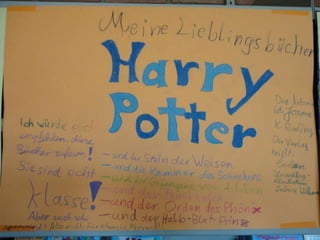 Meine Lieblingsbücher
Harry
Potter
- und der Stein der Weisen
- und die Kammer des Schreckens
- und der Gefangene von
- und der
- und der Orden des Phönix
- und der Halb-Blut-Prinz
Ich würde euch
empfehlen, diese
Bücher zu lesen!
Sie sind echt
klasse!
Aber auch sehr
Die Autorin
ist Joanne
K. Rowling
Der Verlag
heißt
Carlsen